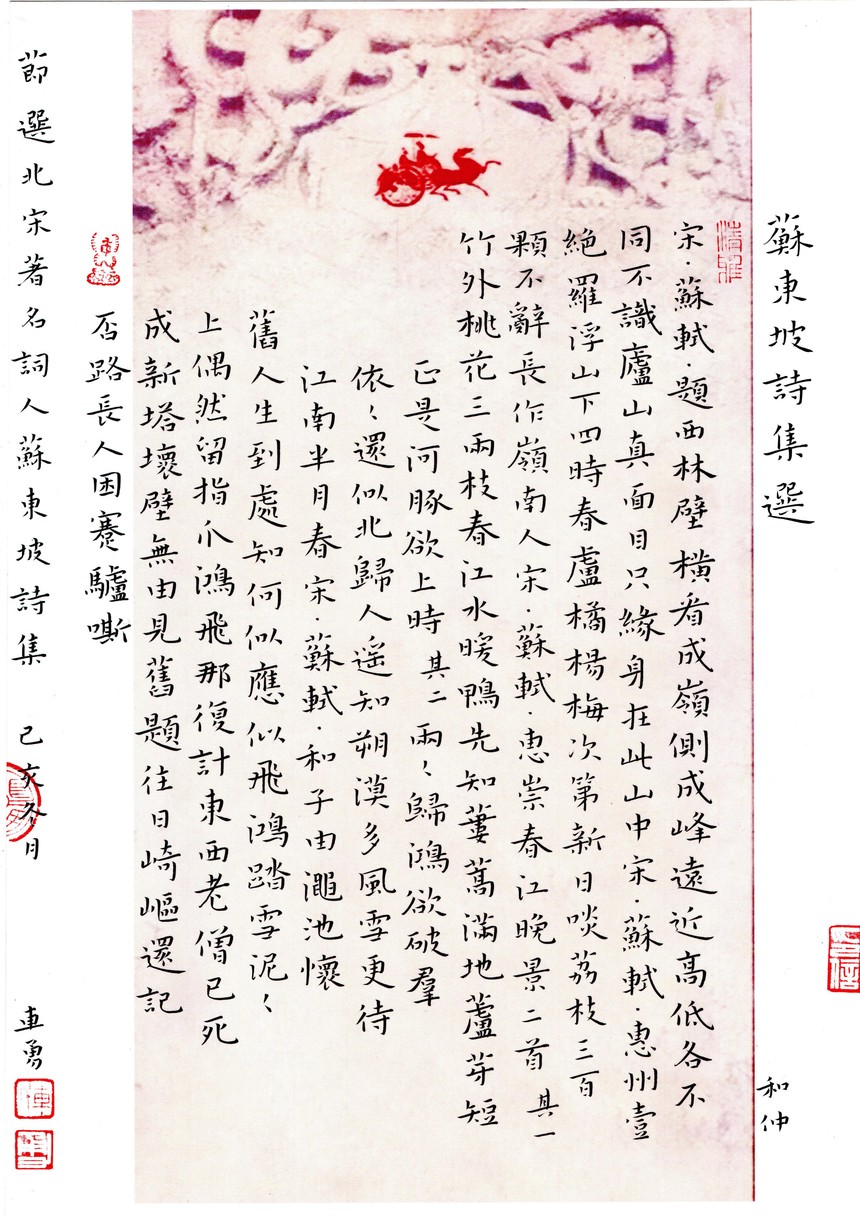 蘇東坡詩集選
和仲
清雅
宋·蘇軾·題西林壁橫看成嶺側成峰遠近高低各不
同不識廬山真面目只緣身在此山中宋·蘇軾·惠州壹
絕羅浮山下四時春盧橘楊梅次第新日啖荔枝三百
顆不辭長作嶺南人宋·蘇軾·惠崇春江晚景二首 其一
竹外桃花三兩枝春江水暖鴨先知蔞蒿滿地蘆芽短
正是河豚欲上時 其二 兩〻歸鴻欲破羣
依〻還似北歸人遥知朔漠多風雪更待
江南半月春宋·蘇軾·和子由澠池懷
舊人生到處知何似應似飛鴻踏雪泥〻
上偶然留指爪鴻飛那復計東西老僧已死
成新塔壞壁無由見舊題往日崎嶇還記
否路長人困蹇驢嘶
節選北宋著名詞人蘇東坡詩集 己亥冬月 車勇